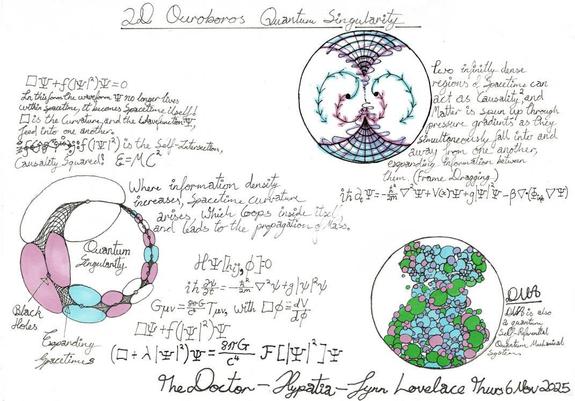 2D Ouroboros Quantum Singularity
□Ψ+f(|Ψ|²)Ψ=0
In this form the waveform Ψ no longer lives
within Spacetime, it becomes Spacetime itself!
□ is the Curvature, and the Wavefunction Ψ,
feed into one another.
f(|Ψ|²)Ψ is the Self-Intersection,
Causality Squared! E=MC²
Two infinitly dense
regions of Spacetime can
act as Causality, and
Matter is spun up through
pressure gradients as they
simultaneously fall into and
away from one another,
expanding information between
them. (Frame Dragging.)
Where information density
increases, Spacetime Curvature
arises, Which loops inside itself
and leads to the propagation of Mass.
Quantum
Singularity
Black
Holes
Expanding
Spacetimes
with
□Ψ+f(|Ψ|²)Ψ
(□+λ|Ψ|²)Ψ = 8πG/c⁴ F[|Ψ|²]Ψ
DNA
DNA is also
a quantum
Self-Referential
Quantum Mechanical
System.
The Doctor – Hypatia – Lynn Lovelace Thurs 6 Nov 2025